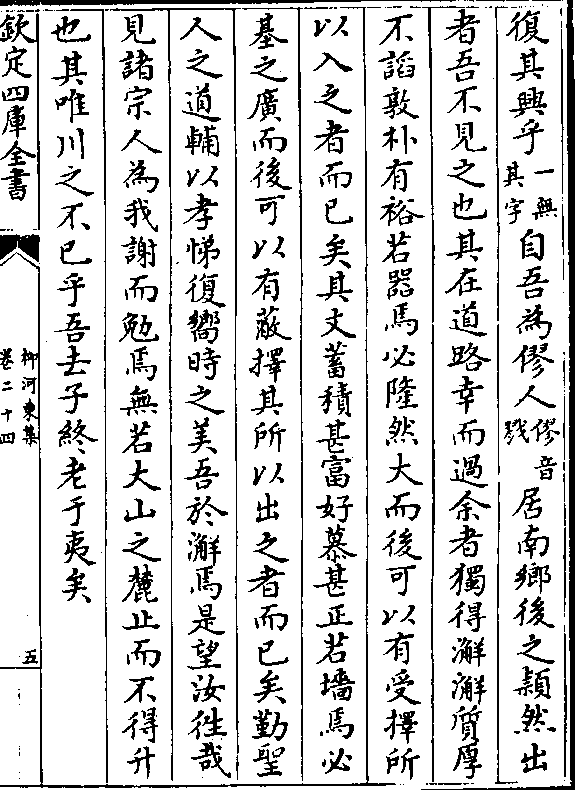 復其興乎一無其字自吾為僇人僇音戮居南鄉後之頴然出
者吾不見之也其在道路幸而過余者獨得澥澥質厚
不謟敦朴有裕若器焉必隆然大而後可以有受擇所
以入之者而已矣其文蓄積甚富好慕甚正若墻焉必
基之廣而後可以有蔽擇其所以出之者而已矣勤聖
人之道輔以孝悌復嚮時之美吾於澥焉是望汝徃哉
見諸宗人為我謝而勉焉無若太山之麓止而不得升
也其唯川之不已乎吾去子終老于夷矣
欽定四庫全書
柳河東集
卷二十四
五